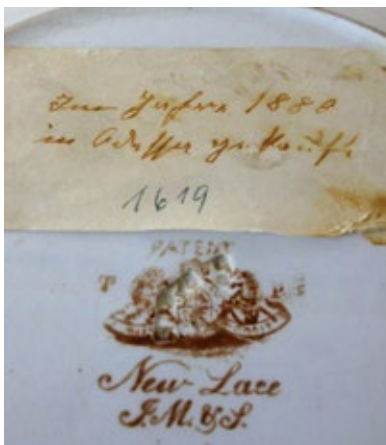 Im Jahre 1880
in Odessa gekauft
1619
PATENT
New Lace
J.M.&S.